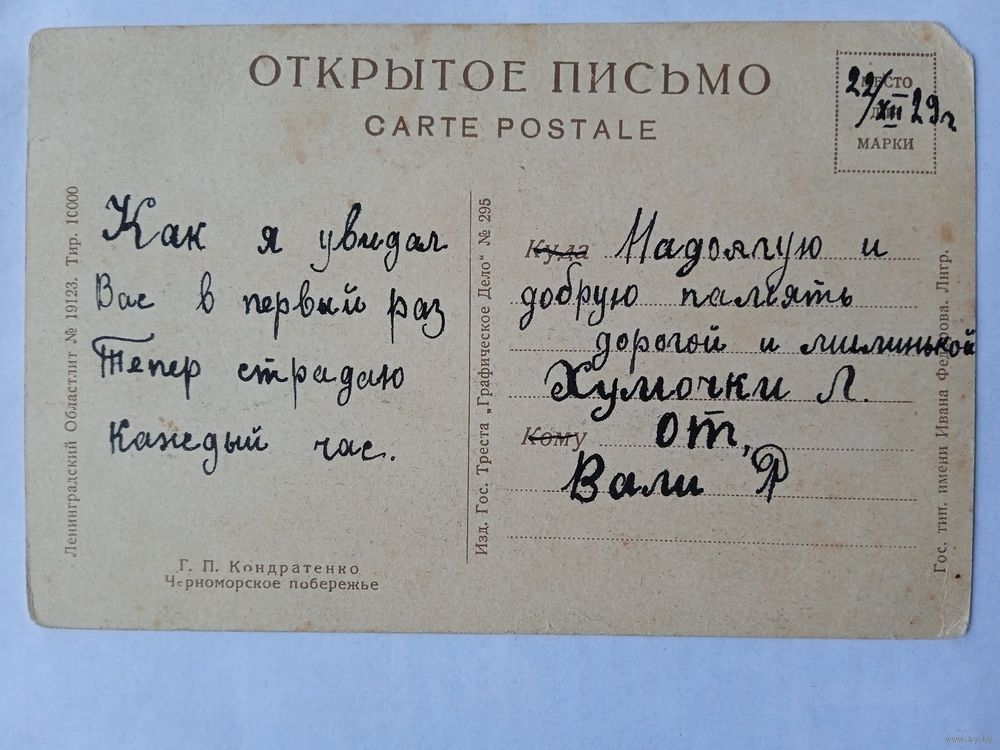 ОТКРЫТОЕ ПИСЬМО
CARTE POSTALE
МЕСТО
ДЛЯ
МАРКИ
22/XII 29г
Ленинградский Областлит № 19123. Тир. 10000
Как я увидал
Вас в первый раз
Тепер страдаю
Каждый час.
Г. П. Кондратенко
Черноморское побережье
Изд. Гос. Треста „Графическое Дело“ № 295
Куда Надолгую и
добрую память
дорогой и милинькой
Хумочки Л.
Кому от,
Вали Р
Гос. тип. имени Ивана Федорова. Лнгр.
www.ay.by